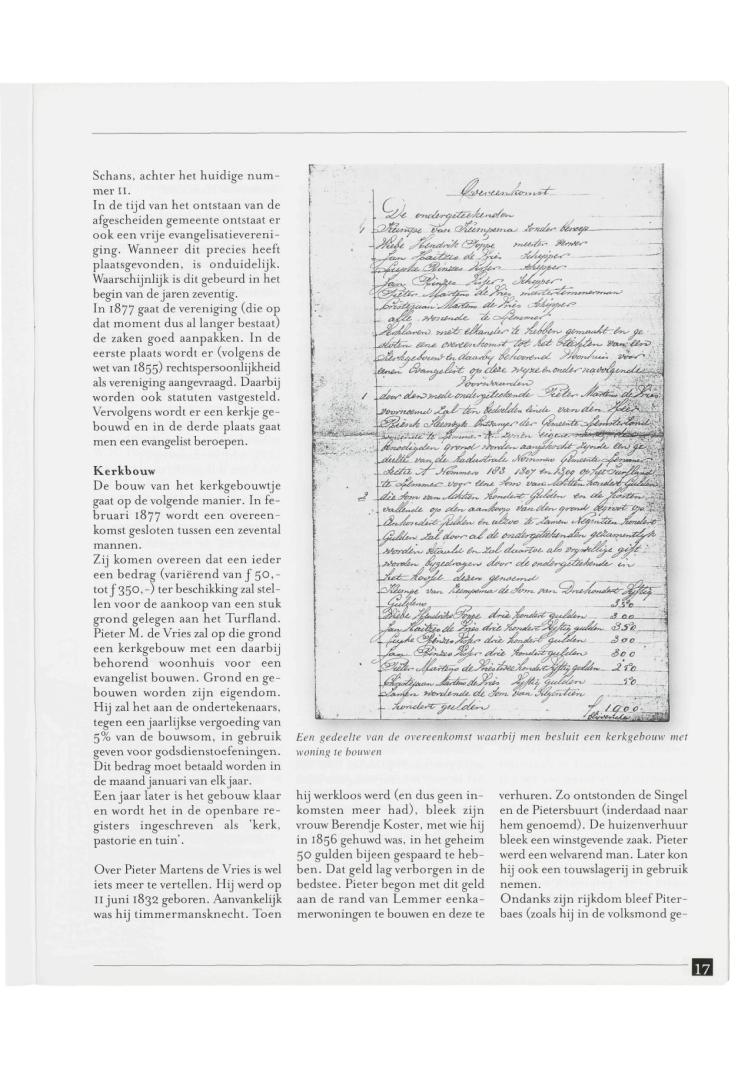 Schans, achter het huidige num-
mer 11.
In de tijd van het ontstaan van de
afgescheiden gemeente ontstaat er
ook een vrije evangelisatievereni-
ging. Wanneer dit precies heeft
plaatsgevonden, is onduidelijk.
Waarschijnlijk is dit gebeurd in het
begin van de jaren zeventig.
In 1877 gaat de vereniging (die op
dat moment dus al langer bestaat)
de zaken goed aanpakken. In de
eerste plaats wordt er (volgens de
wet van 1855) rechtspersoonlijkheid
als vereniging aangevraagd. Daarbij
worden ook statuten vastgesteld.
Vervolgens wordt er een kerkje ge-
bouwd en in de derde plaats gaat
men een evangelist beroepen.
Kerkbouw
De bouw van het kerkgebouwtje
gaat op de volgende manier. In fe-
bruari 1877 wordt een overeen-
komst gesloten tussen een zevental
mannen.
Zij komen overeen dat een ieder
een bedrag (variërend van ƒ 50,-
tot ƒ 350,-) ter beschikking zal stel-
len voor de aankoop van een stuk
grond gelegen aan het Turfland.
Pieter M. de Vries zal op die grond
een kerkgebouw met een daarbij
behorend woonhuis voor een
evangelist bouwen. Grond en ge-
bouwen worden zijn eigendom.
Hij zal het aan de ondertekenaars,
tegen een jaarlijkse vergoeding van
5% van de bouwsom, in gebruik
geven voor godsdienstoefeningen.
Dit bedrag moet betaald worden in
de maand januari van elk jaar.
Een jaar later is het gebouw klaar
en wordt het in de openbare re-
gisters ingeschreven als 'kerk,
pastorie en tuin'.
Over Pieter Martens de Vries is wel
iets meer te vertellen. Hij werd op
11 juni 1832 geboren. Aanvankelijk
was hij timmermansknecht. Toen
Overeenkomst
De ondergeteekenden
van Kempema zonder beroep
Wiebe Hendrik Poppe meester
Jan Kaitzes de Vries Schipper
Rinzes Schipper
Jan Rinzes Schipper
Pieter Martens de Vries meestertimmerman
Martens de Vries Schipper
alle wonende te Lemmer
Verklaren met elkander te hebben gemaakt en ge
sloten eene overeenkomst tot het stichten van een
Kerkgebouw en daarby behoorend Woonhuis voor
eenen Evangelist op deze wyze en onder navolgende
Voorwaarden
1 door den mede ondergeteekende Pieter Martens de Vries
voornoemd zal ten behoeve van den Heer
Ontvanger der Gemeente Lemsterland
wonende te Lemmer
grond worden aangekocht zynde een ge
deelte van de Kadastrale Nommer Gemeente Lemmer
Sectie A Nommers 183 1307 en 1309 op het Turfland
te Lemmer voor eene som van Achttien hondert Gulden
2 die som van Achttien hondert Gulden en de kosten
vallende op den aankoop van den grond begroot op
Eenhondert Gulden en alzoo te zamen Negentien hondert
Gulden zal door al de ondergeteekenden gezamentlyk
worden betaald en zal daartoe als vrywillige gift
worden bygedragen door de ondergeteekende in
het hoofd dezer genoemd
van Kempema de som van Driehondert Vyftig
Guldens 350
Wiebe Hendriks Poppe drie hondert gulden 300
Jan Kaitzes de Vries drie hondert Vyftig gulden 350
Rinzes drie hondert gulden 300
Jan Rinzes drie hondert gulden 300
Pieter Martens de Vries twee hondert Vyftig gulden 250
Martens de Vries Vyftig gulden 50
Zamen werdende de som van Negentien
hondert gulden 1900
Een gedeelte van de overeenkomst waarbij men besluit een kerkgebouw met
woning te bouwen
hij werkloos werd (en dus geen in-
komsten meer had), bleek zijn
vrouw Berendje Koster, met wie hij
in 1856 gehuwd was, in het geheim
50 gulden bijeen gespaard te heb-
ben. Dat geld lag verborgen in de
bedstee. Pieter begon met dit geld
aan de rand van Lemmer eenka-
merwoningen te bouwen en deze te
verhuren. Zo ontstonden de Singel
en de Pietersbuurt (inderdaad naar
hem genoemd). De huizenverhuur
bleek een winstgevende zaak. Pieter
werd een welvarend man. Later kon
hij ook een touwslagerij in gebruik
nemen.
Ondanks zijn rijkdom bleef Piter-
baes (zoals hij in de volksmond ge-
17